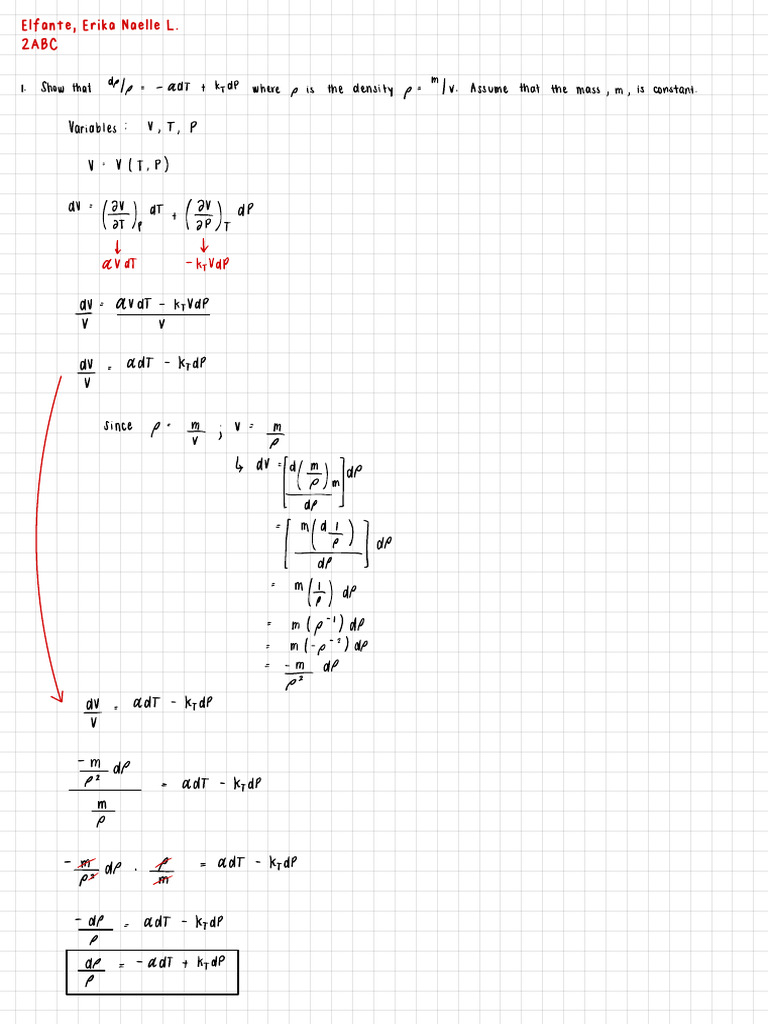 Elfante, Erika Naelle L.
2ABC
1. Show that dρ/ρ = -αdT + kTdP where ρ is the density ρ = m/V. Assume that the mass, m, is constant.
Variables: V, T, P
V = V(T, P)
dV = (∂V/∂T)P dT + (∂V/∂P)T dP
↓ ↓
αVdT -kTVdP
dV/V = αVdT - kTVdP/V
dV/V = αdT - kTdP
since ρ = m/V ; V = m/ρ
↳ dV = [d(m/ρ)m/dρ]dρ
= [m(d 1/ρ)/dρ] dρ
= m(1/ρ) dρ
= m(ρ⁻¹) dρ
= m(-ρ⁻²) dρ
= -m/ρ² dρ
dV/V = αdT - kTdP
-m/ρ² dρ / m/ρ = αdT - kTdP
- m/ρ² dρ · ρ/m = αdT - kTdP
-dρ/ρ = αdT - kTdP
dρ/ρ = -αdT + kTdP